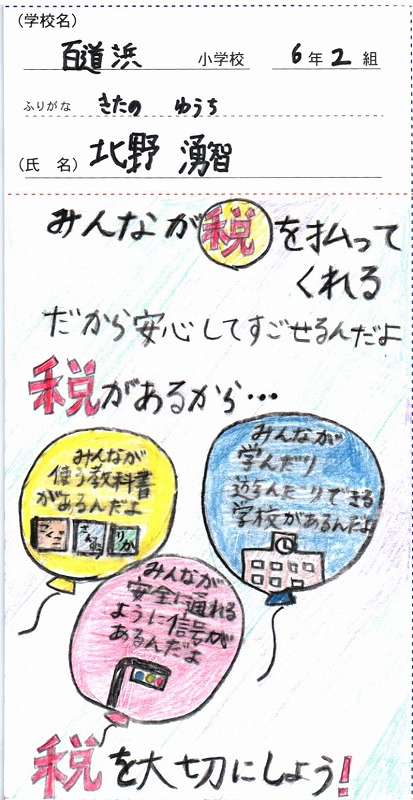 (学校名)
百道浜 小学校 6年2組
ふりがな きたの ゆうち
(氏 名) 北野 湧智
みんなが税を払って
くれる
だから安心してすごせるんだよ
税があるから…
みんなが
使う教科書
があるんだよ
こくご さんすう りか
みんなが
学んだり
遊んだりできる
学校があるんだよ
みんなが
安全に通れる
ように信号が
あるんだよ
税を大切にしよう!